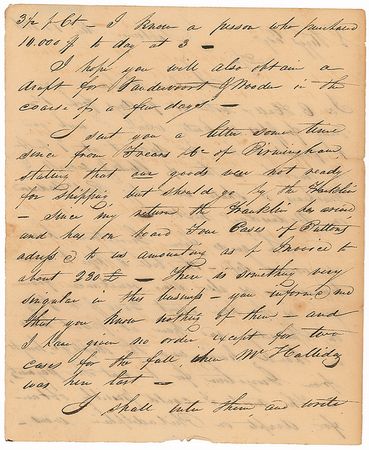 3½ p Ct – I know a person who purchased
10.000 $ to day at 3 –
I hope you will also obtain a
draft for Vandervoort & in the
course of a few days –
I sent you a letter some time
since from &c of Birmingham
stating that our goods were not ready
for shipping but should go by the Franklin
– Since my return the Franklin has arrived
and has on board Four Cases of Buttons
adrssed to us amounting as p Invoice to
about 230 £ – There is something very
singular in this business – you informed me
that you know nothing of them – and
I have given no order except for two
cases for the fall, when Mr Halliday
was here last –
I shall enter them, and write